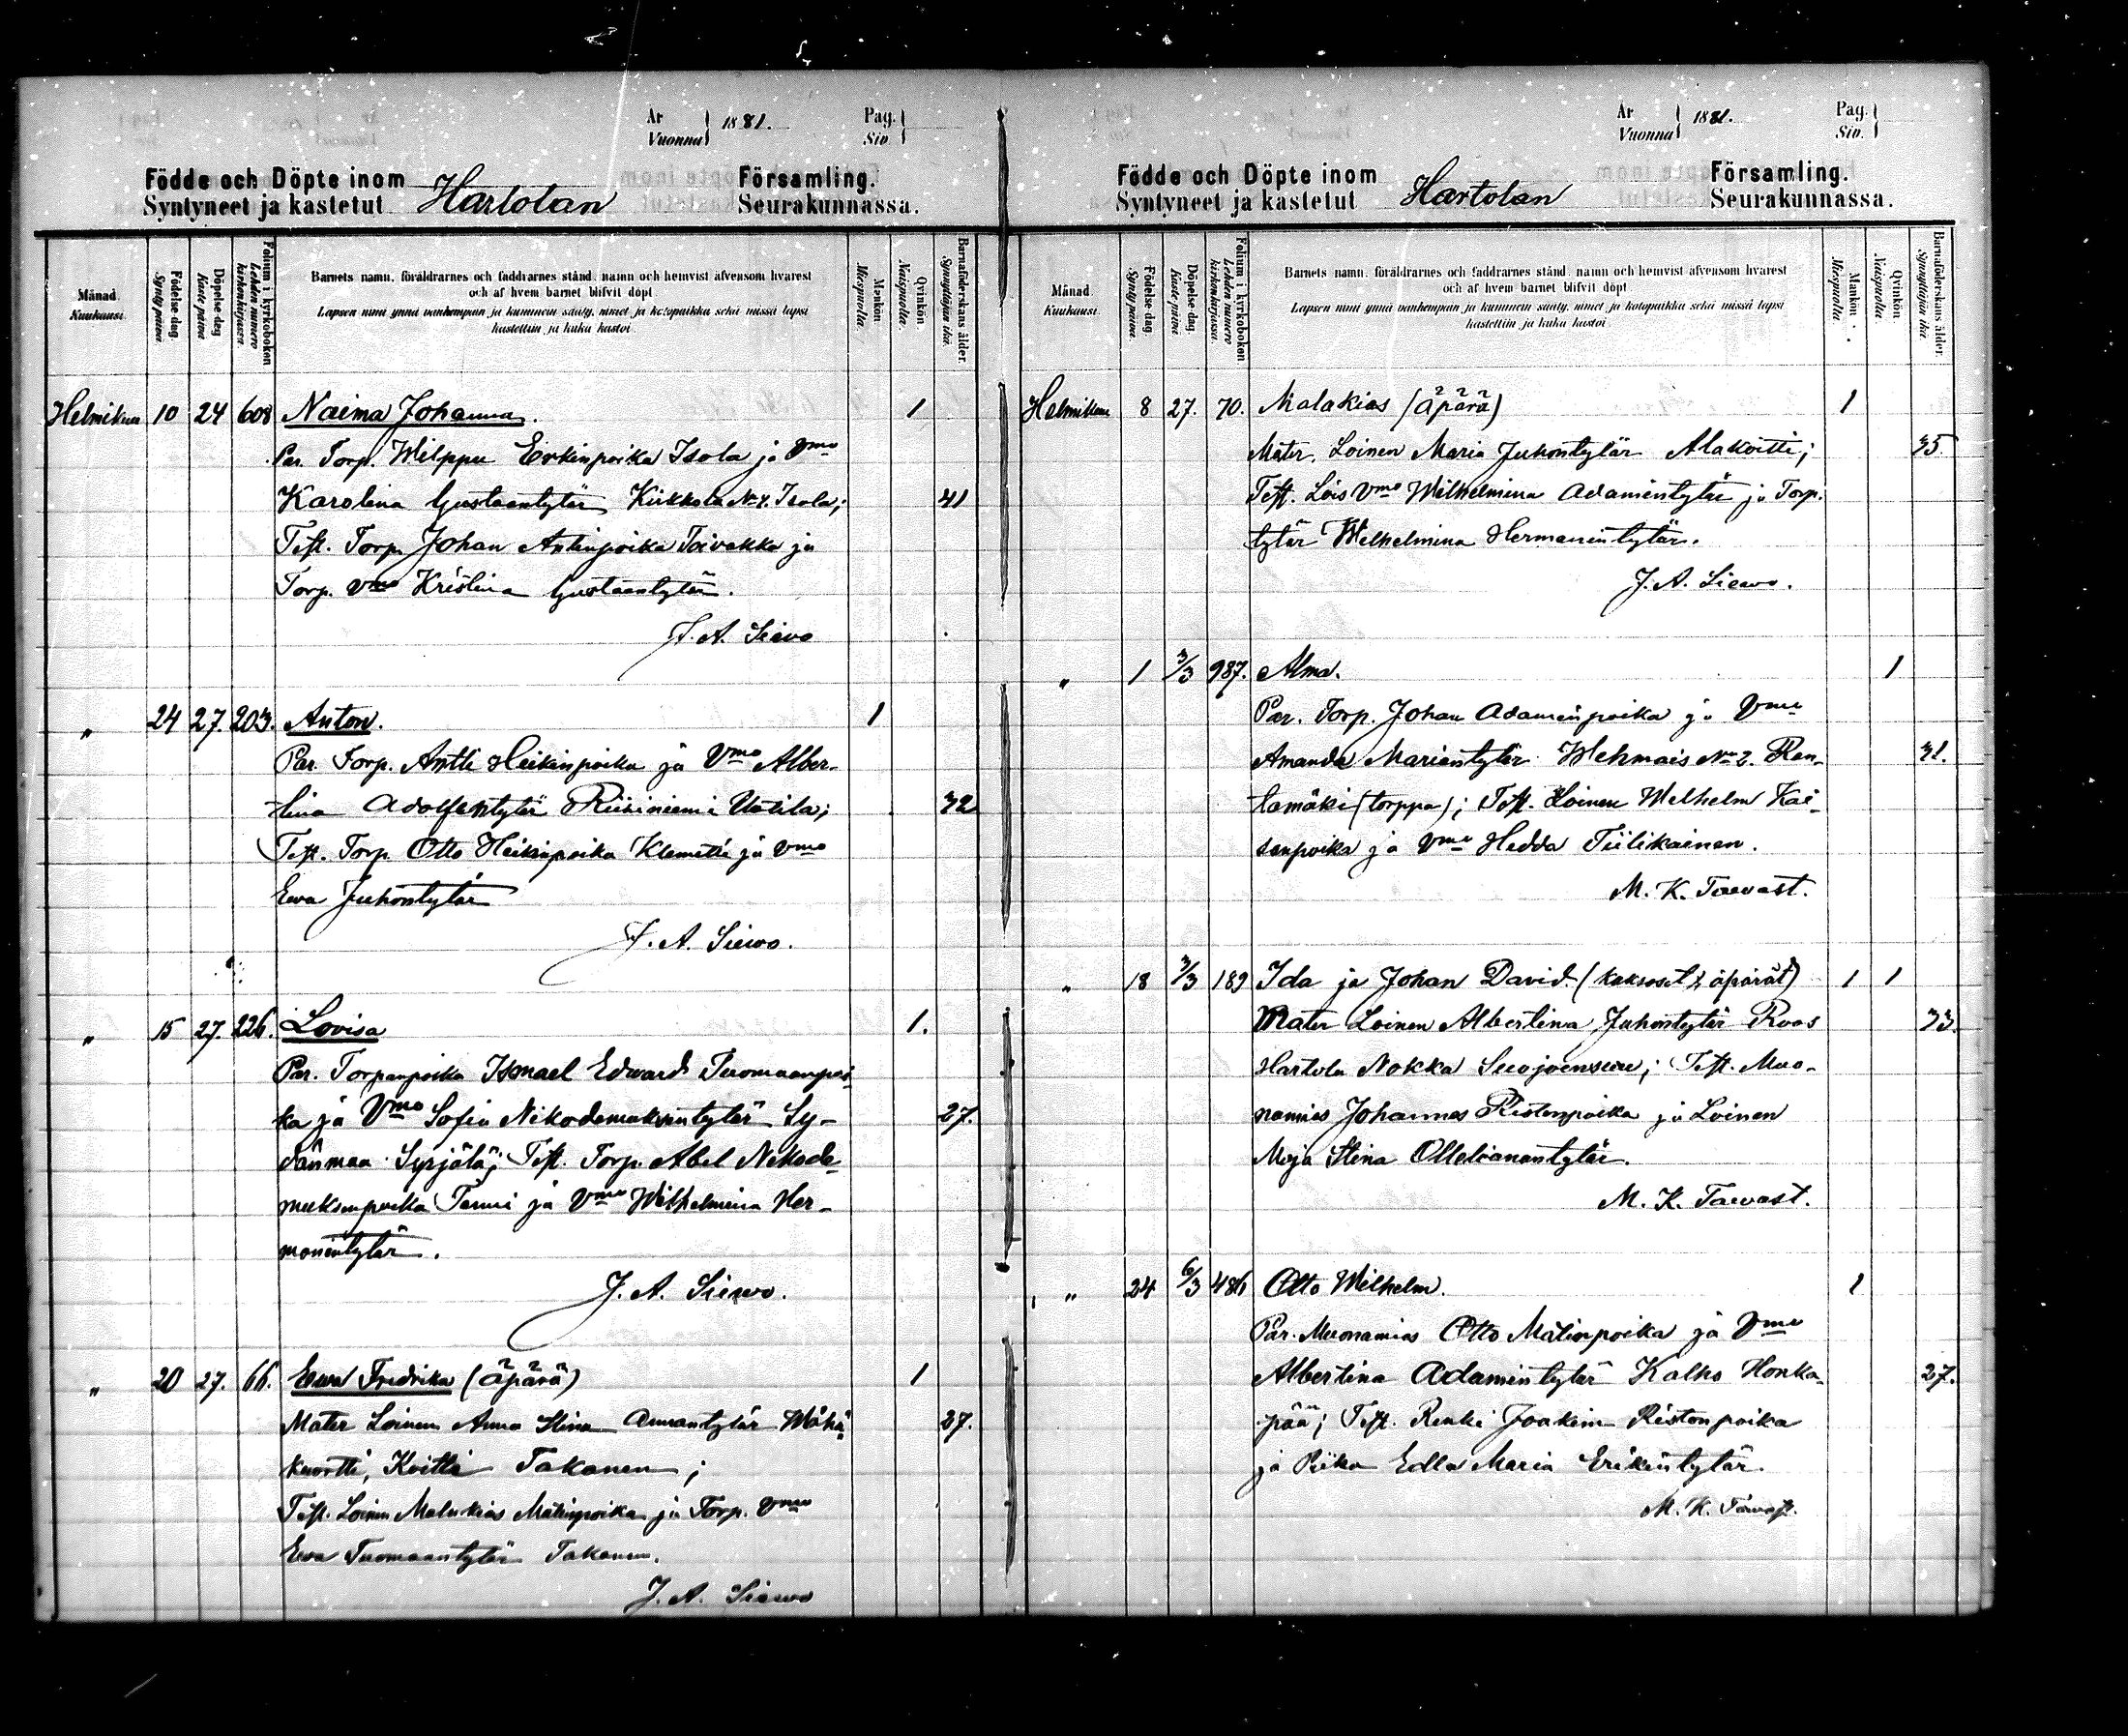 År
Vuonna 1881. Pag.
Siv.
Födde och Döpte inom Hartolan Församling.
Syntyneet ja kastetut Seurakunnassa.
Månad. Kuukausi.
Födelse dag. Synty päivä.
Döpelse dag. Kaste päivä.
Folium i kyrkoboken Lehden numero kirkonkirjassa.
Barnets namn, föräldrarnes och faddrarnes stånd, namn och hemvist äfvensom hvarest
och af hvem barnet blifvit döpt.
Lapsen nimi ynnä vanhempain ja kummein sääty, nimet ja kotopaikka sekä missä lapsi
kastettiin ja kuka kastoi.
Mankön. Miespuolta.
Qvinkön. Naispuolta.
Barnaföderskans ålder. Synnyttäjän ikä.
Helmikuu 10 24 608 Naima Johanna. 1
Par. Torp. Wilppu Erkinpoika Isola ja Vmo
Karolina Gustaantytär Kirkkola No 4. Isola; 41
Test. Torp. Johan Antinpoika Toivakka ja
Torp. Vmo Kristina Gustaantytär.
J. A. Siewo
" 24 27. 203. Anton. 1
Par. Torp. Antti Heikinpoika ja Vmo Alber-
tina Adolfentytär Riihiniemi Uotila; 32
Test. Torp. Otto Heikinpoika Klemetti ja Vmo
Ewa Juhontytär
J. A. Siewo.
" 15 27. 226. Lovisa 1.
Par. Torpanpoika Ismael Edward Tuomaanpoi-
ka ja Vmo Sofia Nikodemuksentytär Sy- 27.
dänmaa Syrjälä; Test. Torp. Abel Nikode-
muksenpoika Termi ja Vmo Wilhelmina Her-
monintytär.
J. A. Siewo.
" 20 27. 66. Ewa Fredrika (äpärä) 1
Mater Loinen Anna Stina Annantytär Wähä- 27.
kuortti, Koitti Takanen;
Test. Loinen Malakias Matinpoika ja Torp. Vmo
Ewa Tuomaantytär Takanen.
J. A. Siewo
År
Vuonna 1881. Pag.
Siv.
Födde och Döpte inom Hartolan Församling.
Syntyneet ja kastetut Seurakunnassa.
Månad. Kuukausi.
Födelse dag. Synty päivä.
Döpelse dag. Kaste päivä.
Folium i kyrkoboken Lehden numero kirkonkirjassa.
Barnets namn, föräldrarnes och faddrarnes stånd, namn och hemvist äfvensom hvarest
och af hvem barnet blifvit döpt.
Lapsen nimi ynnä vanhempain ja kummein sääty, nimet ja kotopaikka sekä missä lapsi
kastettiin ja kuka kastoi.
Mankön. Miespuolta.
Qvinkön. Naispuolta.
Barnaföderskans ålder. Synnyttäjän ikä.
Helmikuu 8 27. 70. Malakias (äpärä) 1
Mater. Loinen Maria Juhontytär Alakoitti; 35.
Test. Lois Vmo Wilhelmina Adamintytär ja Torp.
tytär Wilhelmina Hermanintytär.
J. A. Siewo.
" 1 3/3 987. Alma. 1
Par. Torp. Johan Adaminpoika ja Vmo
Amanda Mariantytär Wehmais No 2. Ran- 31.
tamäki (torppa); Test. Loinen Welhelm Kai-
sanpoika ja Vmo Hedda Tiilikainen.
M. K. Tawast.
" 18 3/3 189 Ida ja Johan David (kaksoset, äpärät) 1 1
Mater Loinen Albertina Juhontytär Roos 33.
Hartola Nokka Suojoensuu; Test. Muo-
namies Johannes Ristonpoika ja Loinen
Maja Stina Ollelianantytär.
M. K. Tawast.
" 24 6/3 486 Otto Wilhelm. 1
Par. Muonamies Otto Matinpoika ja Vmo
Albertina Adamintytär Kalho Honka- 27.
pää; Test. Renki Joakim Ristonpoika
ja Piika Edla Maria Erikintytär.
M. K. Tawast.